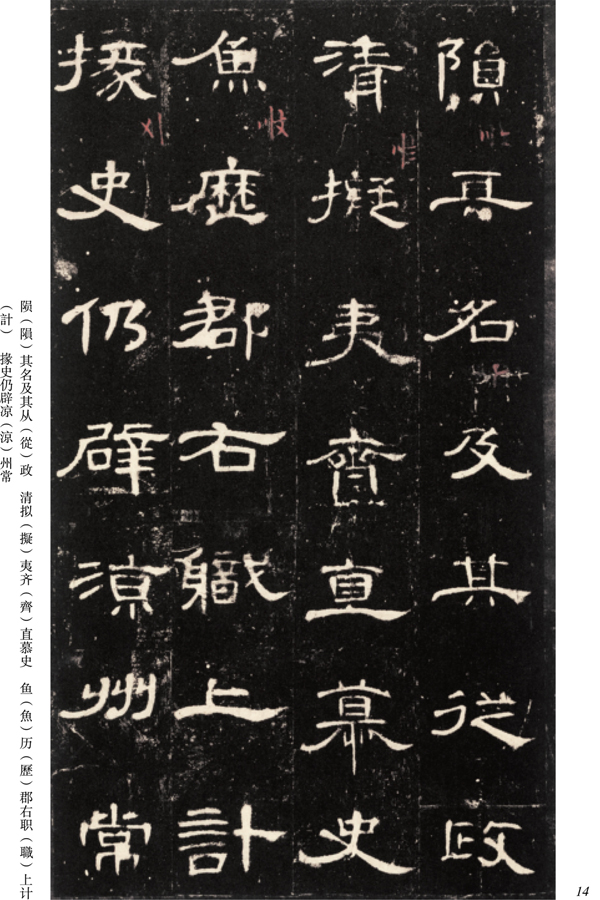 隕其名及其從政
清擬夷齊直慕史
魚歷郡右職上計
掾史仍辟涼州常
陨（隕）其名及其从（從）政　清拟（擬）夷齐（齊）直慕史　鱼（魚）历（歷）郡右职（職）上计
（計）　掾史仍辟凉（涼）州常
14